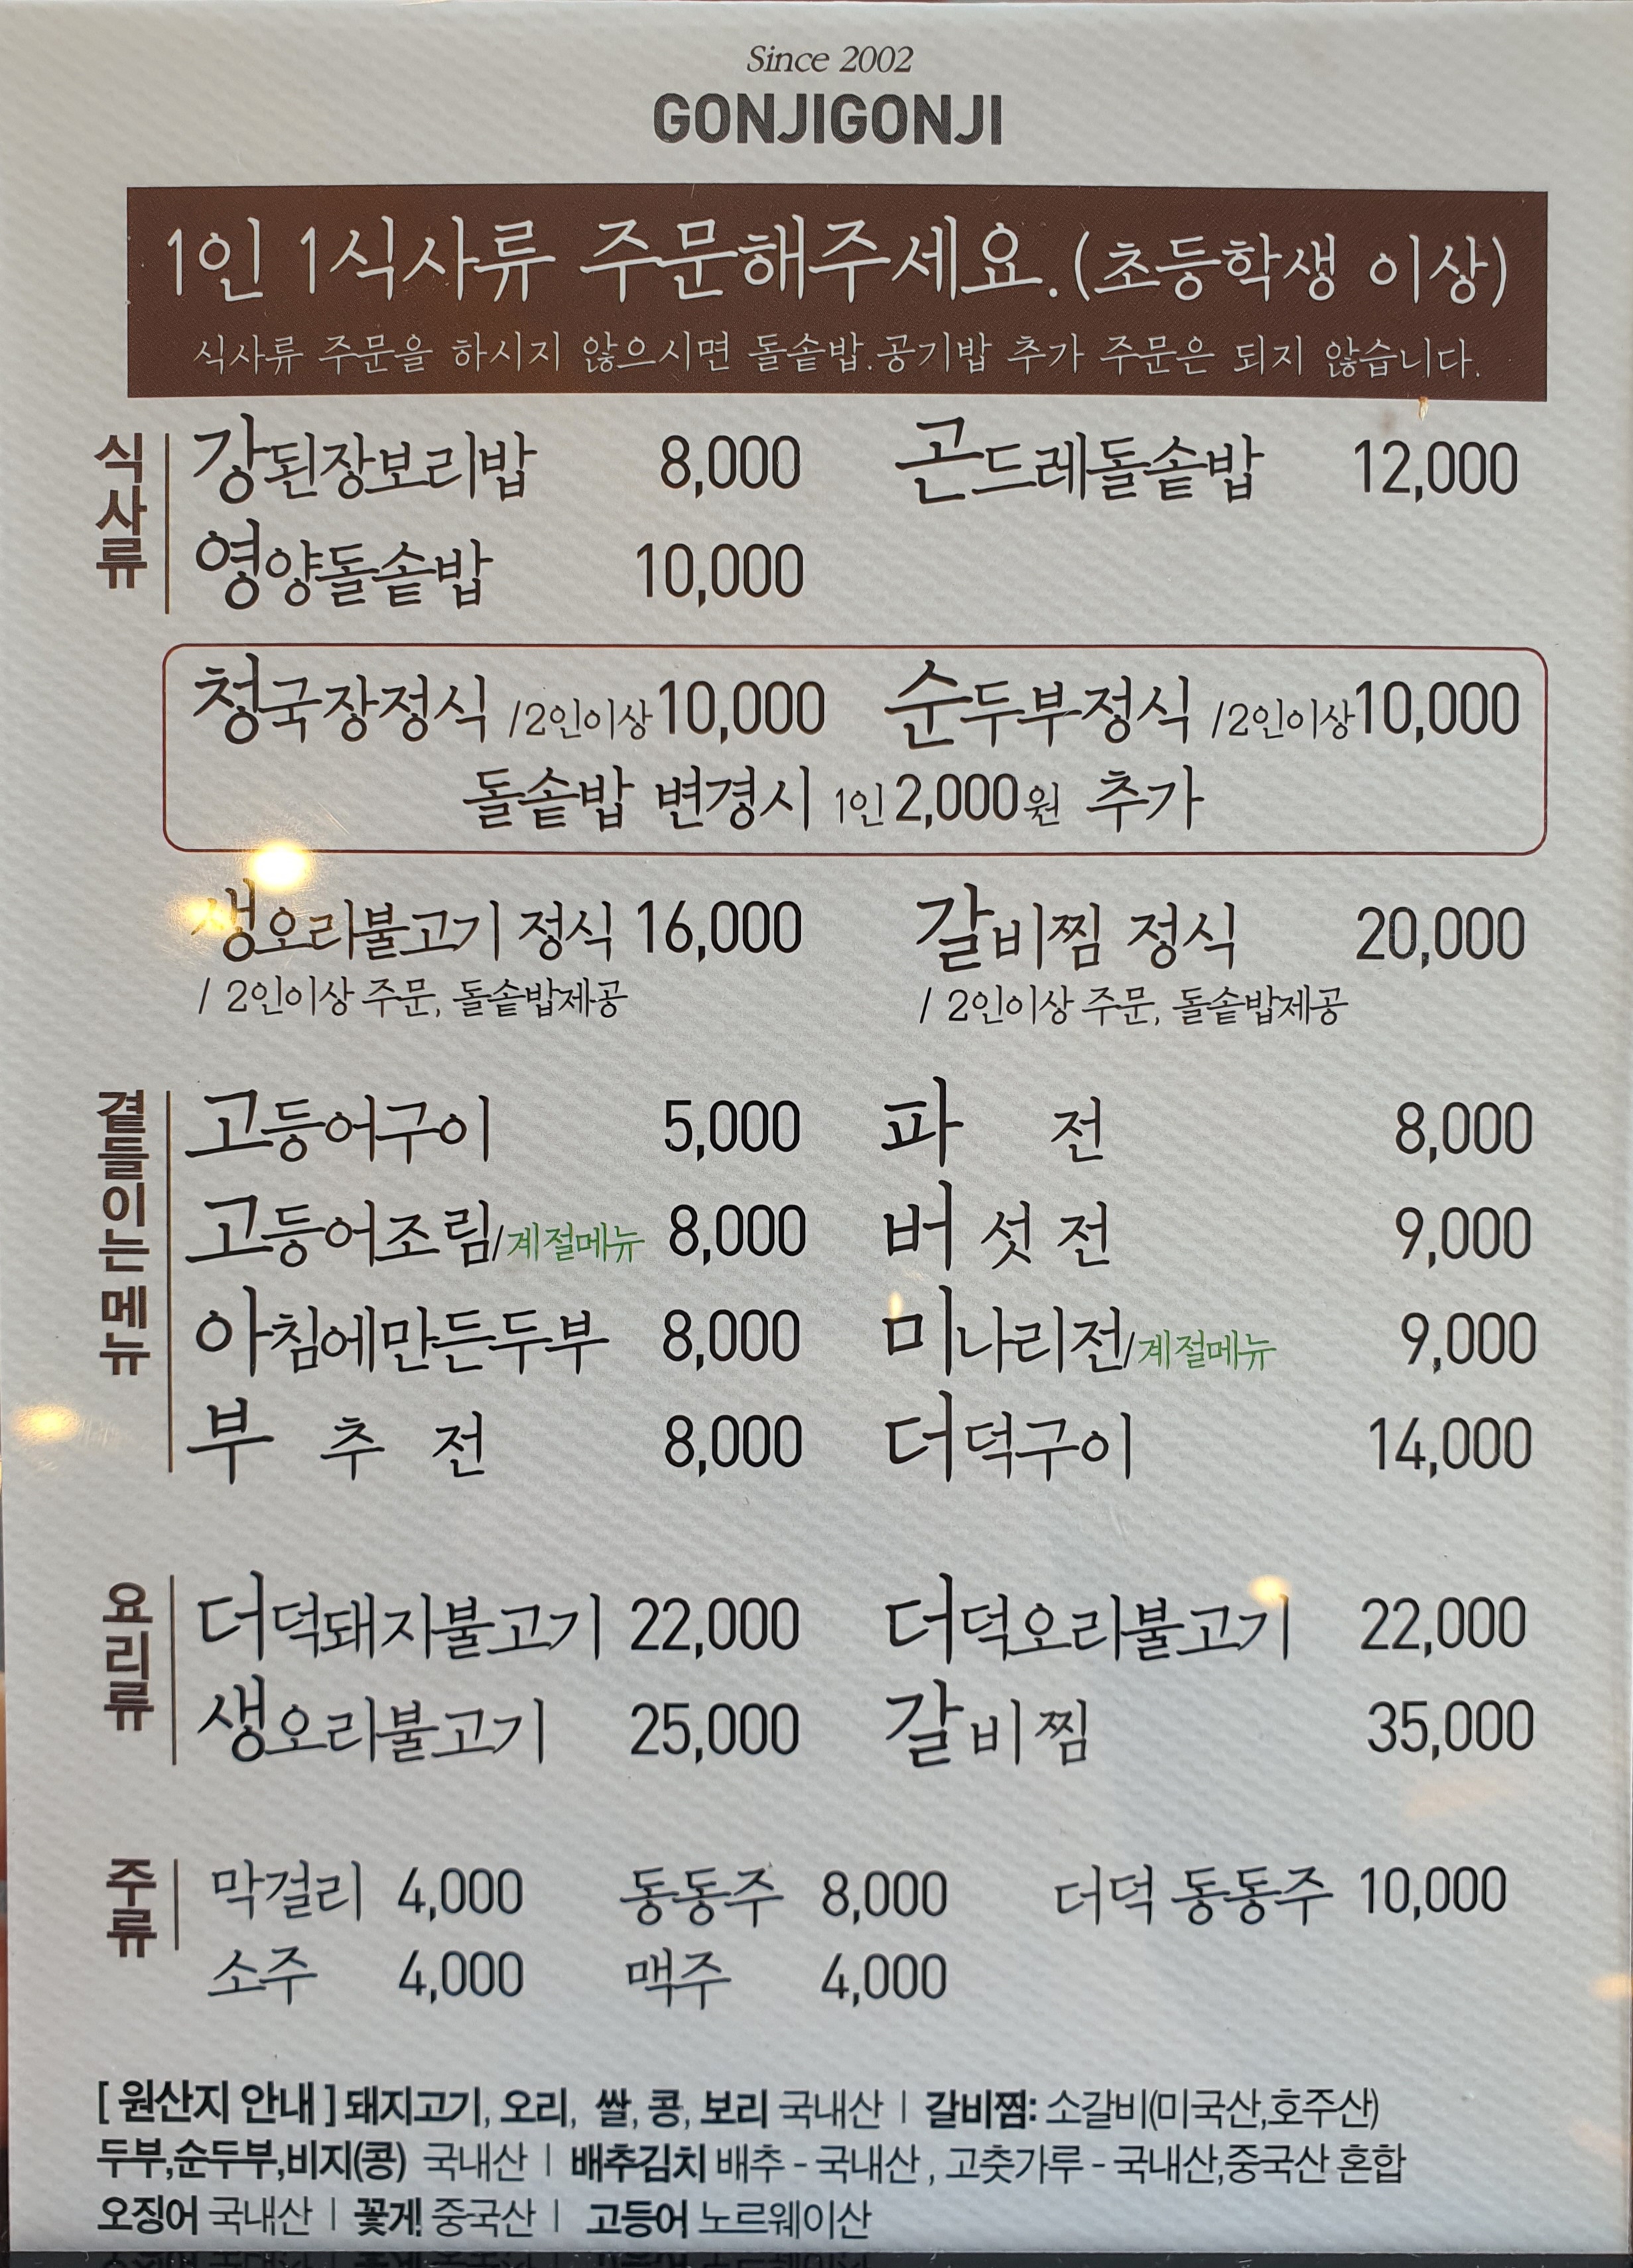 Since 2002
GONJIGONJI
1인 1식사류 주문해주세요.(초등학생 이상)
식사류 주문을 하시지 않으시면 돌솥밥.공기밥 추가 주문은 되지 않습니다.
식사류
강된장보리밥 8,000 곤드레돌솥밥 12,000
영양돌솥밥 10,000
청국장정식 /2인이상 10,000 순두부정식 /2인이상 10,000
돌솥밥 변경시 1인 2,000원 추가
생오리불고기 정식 16,000 갈비찜 정식 20,000
/ 2인이상 주문, 돌솥밥제공 / 2인이상 주문, 돌솥밥제공
곁들이는 메뉴
고등어구이 5,000 파 전 8,000
고등어조림/계절메뉴 8,000 버 섯 전 9,000
아침에만든두부 8,000 미나리전/계절메뉴 9,000
부 추 전 8,000 더덕구이 14,000
요리류
더덕돼지불고기 22,000 더덕오리불고기 22,000
생오리불고기 25,000 갈비찜 35,000
주류
막걸리 4,000 동동주 8,000 더덕 동동주 10,000
소주 4,000 맥주 4,000
[ 원산지 안내 ] 돼지고기, 오리, 쌀, 콩, 보리 국내산 | 갈비찜: 소갈비(미국산,호주산)
두부,순두부,비지(콩) 국내산 | 배추김치 배추 - 국내산 , 고춧가루 - 국내산,중국산 혼합
오징어 국내산 | 꽃게 중국산 | 고등어 노르웨이산